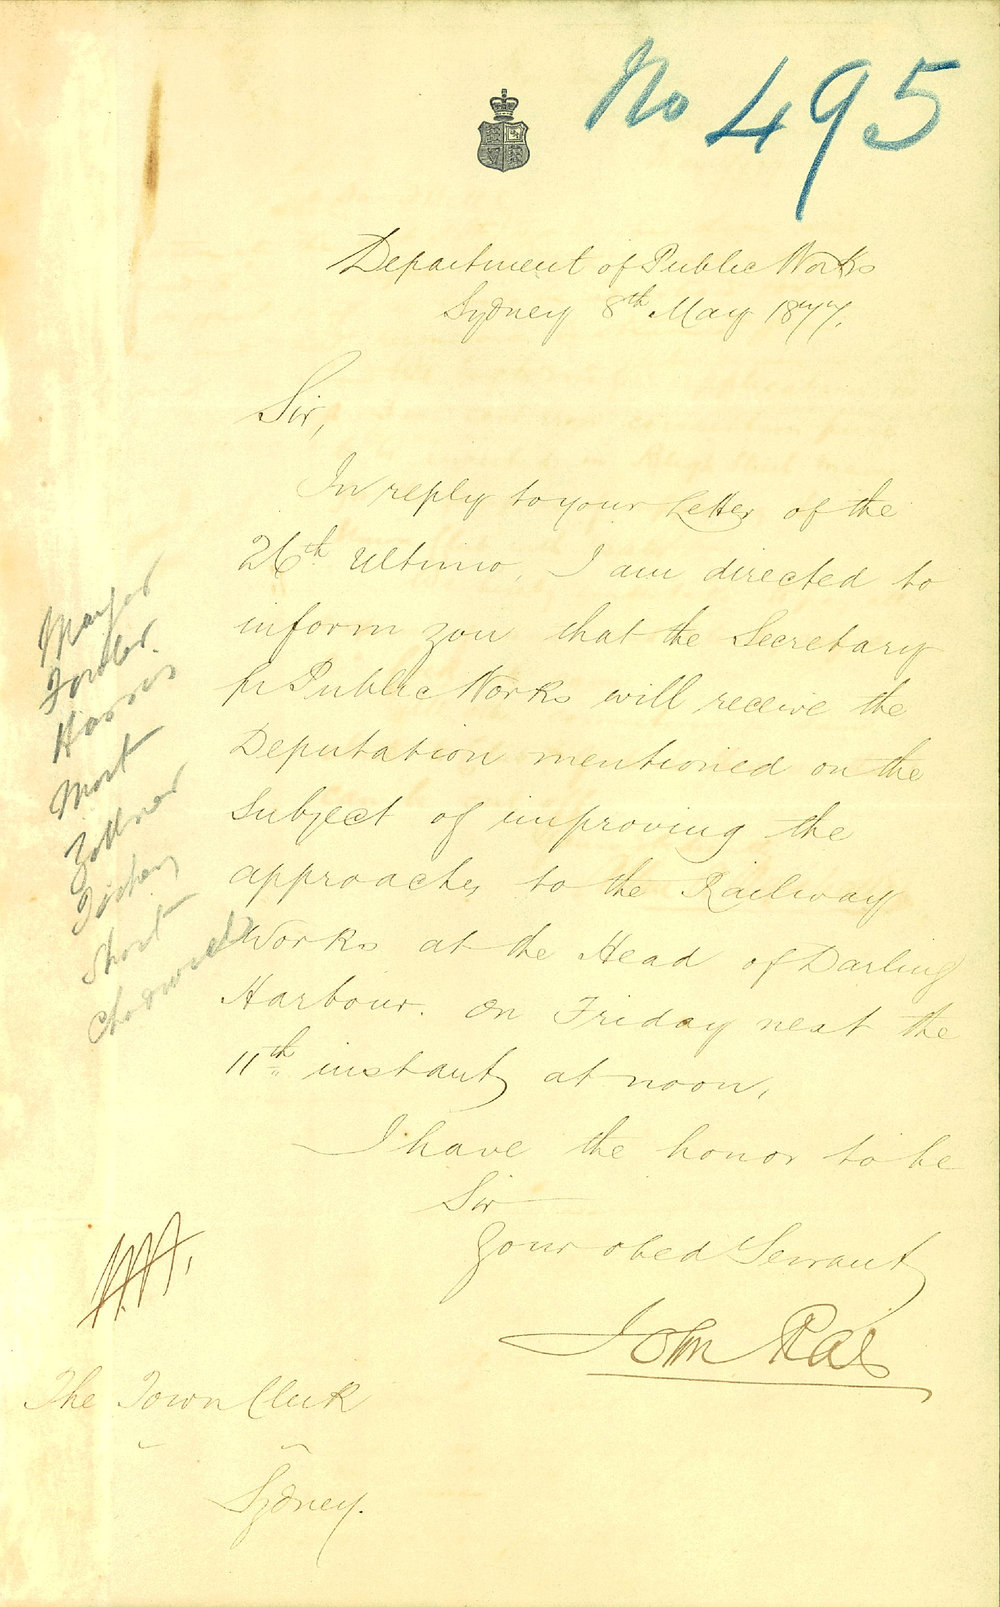 No 495
Department of Public Works
Sydney 8th May 1877.
Sir,
In reply to your Letter of the
26th Ultimo, I am directed to
inform you that the Secretary
for Public Works will receive the
Deputation mentioned on the
Subject of improving the
approaches to the Railway
Works at the Head of Darling
Harbour. On Friday next the
11th instant, at noon,
I have the honor to be
Sir
Your obed Servant,
John Rae
The Town Clerk
Sydney.
Mayor
Fowler
Harris
Mort
Zollner
Short
Chadwick